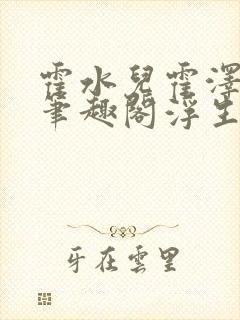 霍水兒霍澤
筆趣閣浮生
牙在雲里